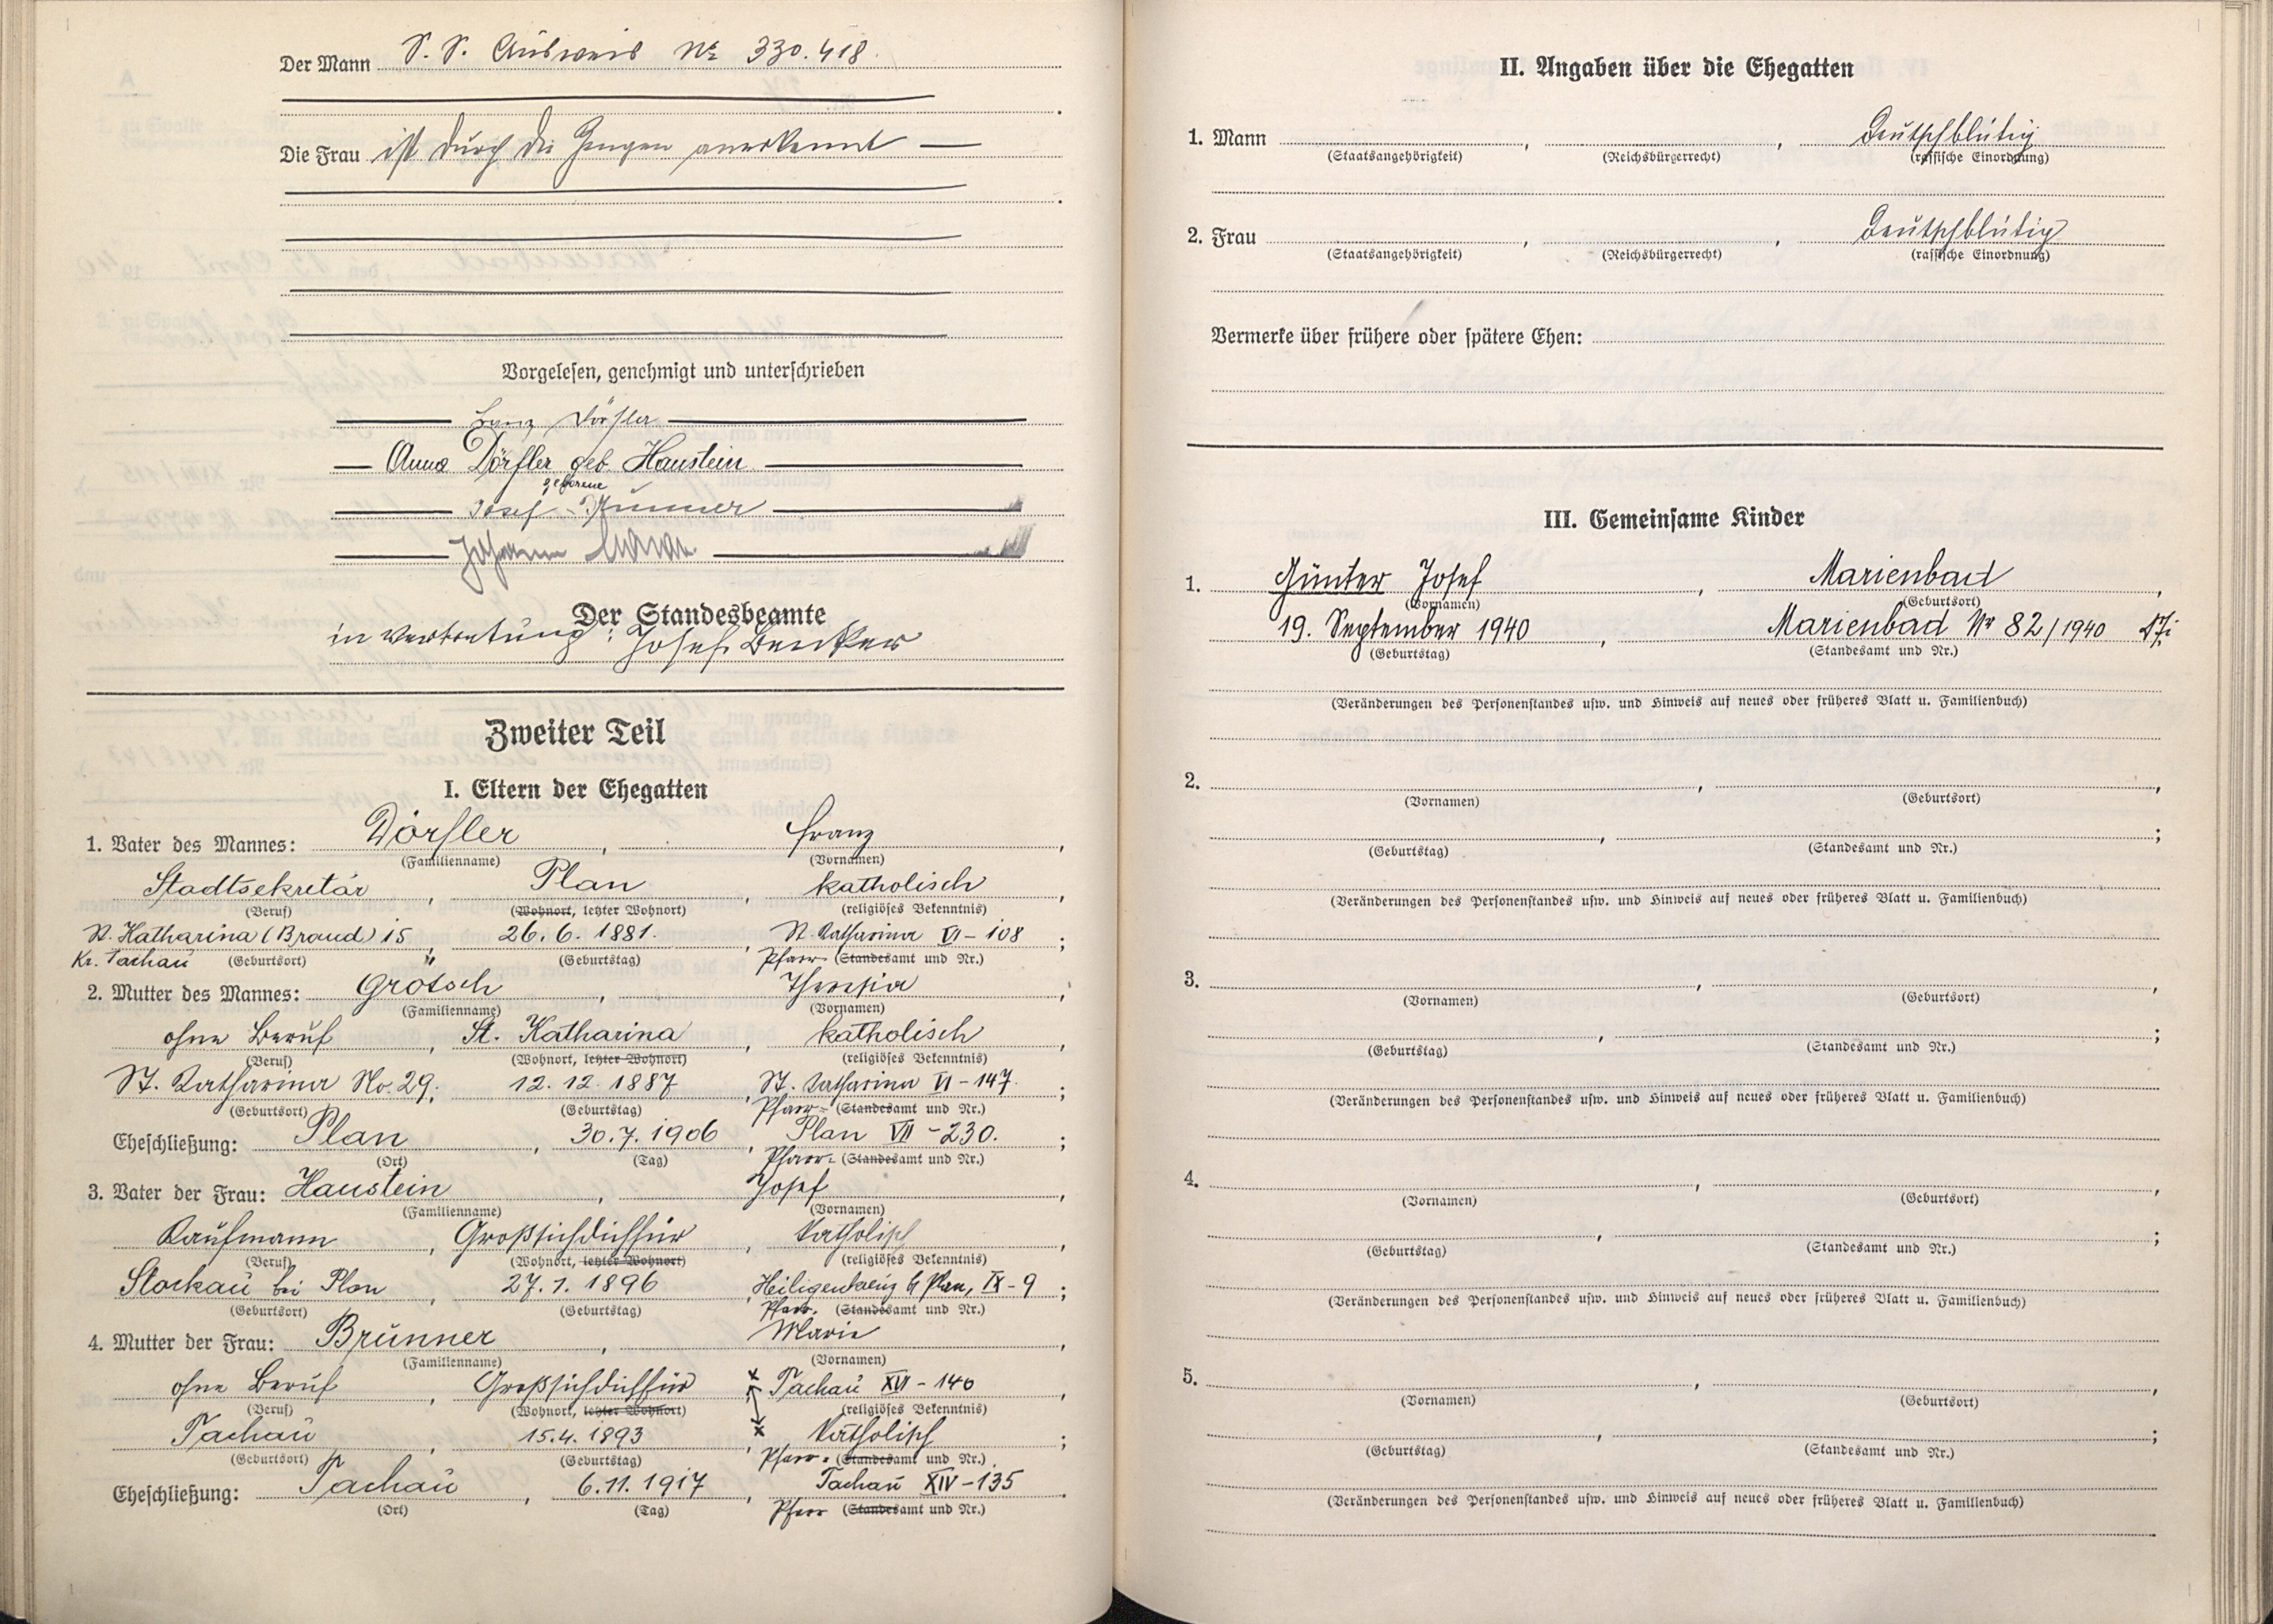 Der Mann S. S. Ausweis No 330.418.
Die Frau ist durch die Zeugen anerkannt
Vorgelesen, genehmigt und unterschrieben
Franz Dörfler
Anna Dörfler geb. Haustein
geborene
Josef Brunner
Johann
Der Standesbeamte
in Vertretung: Josef Benker
Zweiter Teil
I. Eltern der Ehegatten
1. Vater des Mannes: Dörfler, Franz,
(Familienname) (Vornamen)
Stadtsekretär, Plan, katholisch,
(Beruf) (Wohnort, letzter Wohnort) (religiöses Bekenntnis)
St. Katharina (Brand) 15, 26. 6. 1881., St. Katharina VI - 108;
Kr. Tachau (Geburtsort) (Geburtstag) Pfarr- (Standesamt und Nr.)
2. Mutter des Mannes: Grötsch, Theresia,
(Familienname) (Vornamen)
ohne Beruf, St. Katharina, katholisch,
(Beruf) (Wohnort, letzter Wohnort) (religiöses Bekenntnis)
St. Katharina No. 29., 12. 12. 1887, St. Katharina VI - 147.;
(Geburtsort) (Geburtstag) Pfarr- (Standesamt und Nr.)
Eheschließung: Plan, 30. 7. 1906, Plan VII - 230.;
(Ort) (Tag) Pfarr- (Standesamt und Nr.)
3. Vater der Frau: Haustein, Josef,
(Familienname) (Vornamen)
Kaufmann, Großsichdichfür, katholisch,
(Beruf) (Wohnort, letzter Wohnort) (religiöses Bekenntnis)
Stockau bei Plan, 27. 1. 1896, Heiligenkreuz b Plan, IX - 9;
(Geburtsort) (Geburtstag) Pfarr. (Standesamt und Nr.)
4. Mutter der Frau: Brunner, Marie,
(Familienname) (Vornamen)
ohne Beruf, Großsichdichfür, x Tachau XVI - 140,
(Beruf) (Wohnort, letzter Wohnort) (religiöses Bekenntnis)
Tachau, 15. 4. 1893, x katholisch;
(Geburtsort) (Geburtstag) Pfarr- (Standesamt und Nr.)
Eheschließung: Tachau, 6. 11. 1917, Tachau XIV - 135.
(Ort) (Tag) Pfarr (Standesamt und Nr.)
II. Angaben über die Ehegatten
1. Mann , , Deutschblütig
(Staatsangehörigkeit) (Reichsbürgerrecht) (rassische Einordnung)
2. Frau , , Deutschblütig
(Staatsangehörigkeit) (Reichsbürgerrecht) (rassische Einordnung)
Vermerke über frühere oder spätere Ehen:
III. Gemeinsame Kinder
1. Günter Josef, Marienbad,
(Vornamen) (Geburtsort)
19. September 1940, Marienbad Nr 82/1940
(Geburtstag) (Standesamt und Nr.)
(Veränderungen des Personenstandes usw. und Hinweis auf neues oder früheres Blatt u. Familienbuch)
2. , ,
(Vornamen) (Geburtsort)
, ;
(Geburtstag) (Standesamt und Nr.)
(Veränderungen des Personenstandes usw. und Hinweis auf neues oder früheres Blatt u. Familienbuch)
3. , ,
(Vornamen) (Geburtsort)
, ;
(Geburtstag) (Standesamt und Nr.)
(Veränderungen des Personenstandes usw. und Hinweis auf neues oder früheres Blatt u. Familienbuch)
4. , ,
(Vornamen) (Geburtsort)
, ;
(Geburtstag) (Standesamt und Nr.)
(Veränderungen des Personenstandes usw. und Hinweis auf neues oder früheres Blatt u. Familienbuch)
5. , ,
(Vornamen) (Geburtsort)
, ;
(Geburtstag) (Standesamt und Nr.)
(Veränderungen des Personenstandes usw. und Hinweis auf neues oder früheres Blatt u. Familienbuch)